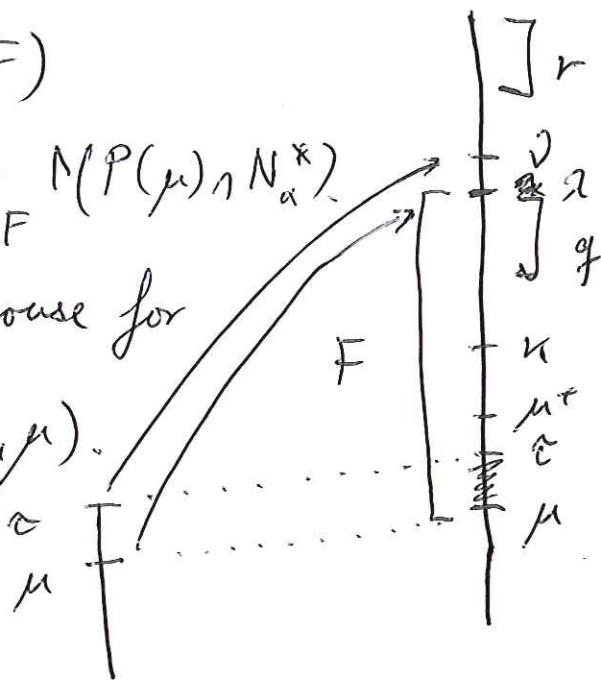 F)
N(P(μ) ∩ N*_α).
F
ouse for
, μ).
τ
μ
] r
ν
λ
] q
F
κ
μ⁺
τ
μ